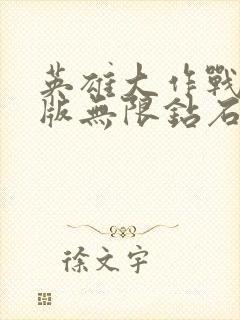 英雄大作戰
版無限鉆石
徐文宇